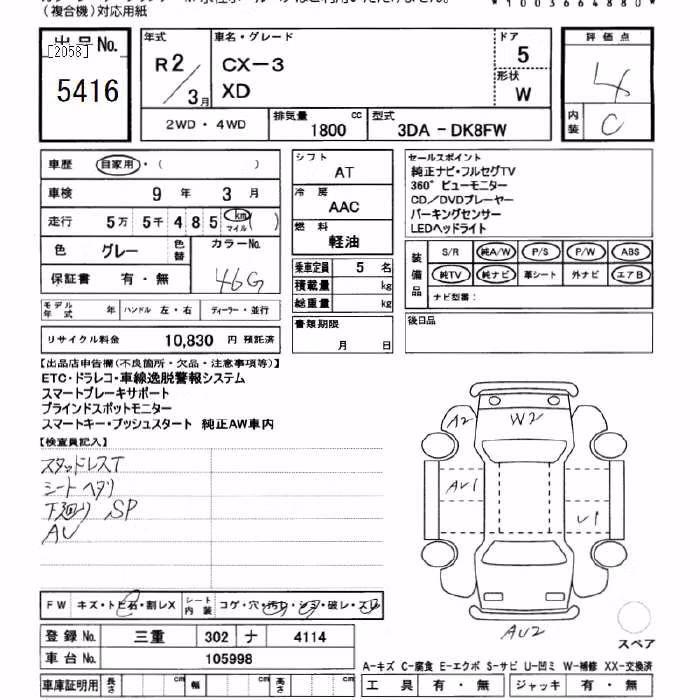 （複合機）対応用紙
*1003664880*
出品No.
[2058]
5416
年式
R2/3月
車名・グレード
CX-3
XD
ドア
5
形状
W
評価点
4
内装
C
2WD・4WD
排気量
1800 cc
型式
3DA-DK8FW
車歴 自家用・（ ）
車検 9年 3月
走行 5万 5千 4 8 5 km マイル ( )
色 グレー 色替
カラーNo.
46G
保証書 有・無
モデル年式 年 ハンドル 左・右 ディーラー・並行
リサイクル料金 10,830 円 預託済
シフト
AT
冷房
AAC
燃料
軽油
乗車定員 5 名
積載量 kg
総重量 kg
書類期限
月 日
セールスポイント
純正ナビ・フルセグTV
360°ビューモニター
CD／DVDプレーヤー
パーキングセンサー
LEDヘッドライト
装備品
S/R 純A/W P/S P/W ABS
純TV 純ナビ 革シート 外ナビ エアB
ナビ型番：
後日品
【出品店申告欄(不良箇所・欠品・注意事項等)】
ETC・ドラレコ・車線逸脱警報システム
スマートブレーキサポート
ブラインドスポットモニター
スマートキー・プッシュスタート 純正AW車内
【検査員記入】
スタッドレスT
シートヘタリ
下廻り SP
AU
A2
W2
AU1
U1
AU2
スペア
FW キズ・トビ石・割レX シート内装 コゲ・穴・汚レ・シミ・破レ・スレ
登録No. 三重 302 ナ 4114
車台No. 105998
車庫証明用 長さ cm 幅 cm 高さ cm
A-キズ C-腐食 E-エクボ S-サビ U-凹ミ W-補修 XX-交換済
工具 有・無 ジャッキ 有・無